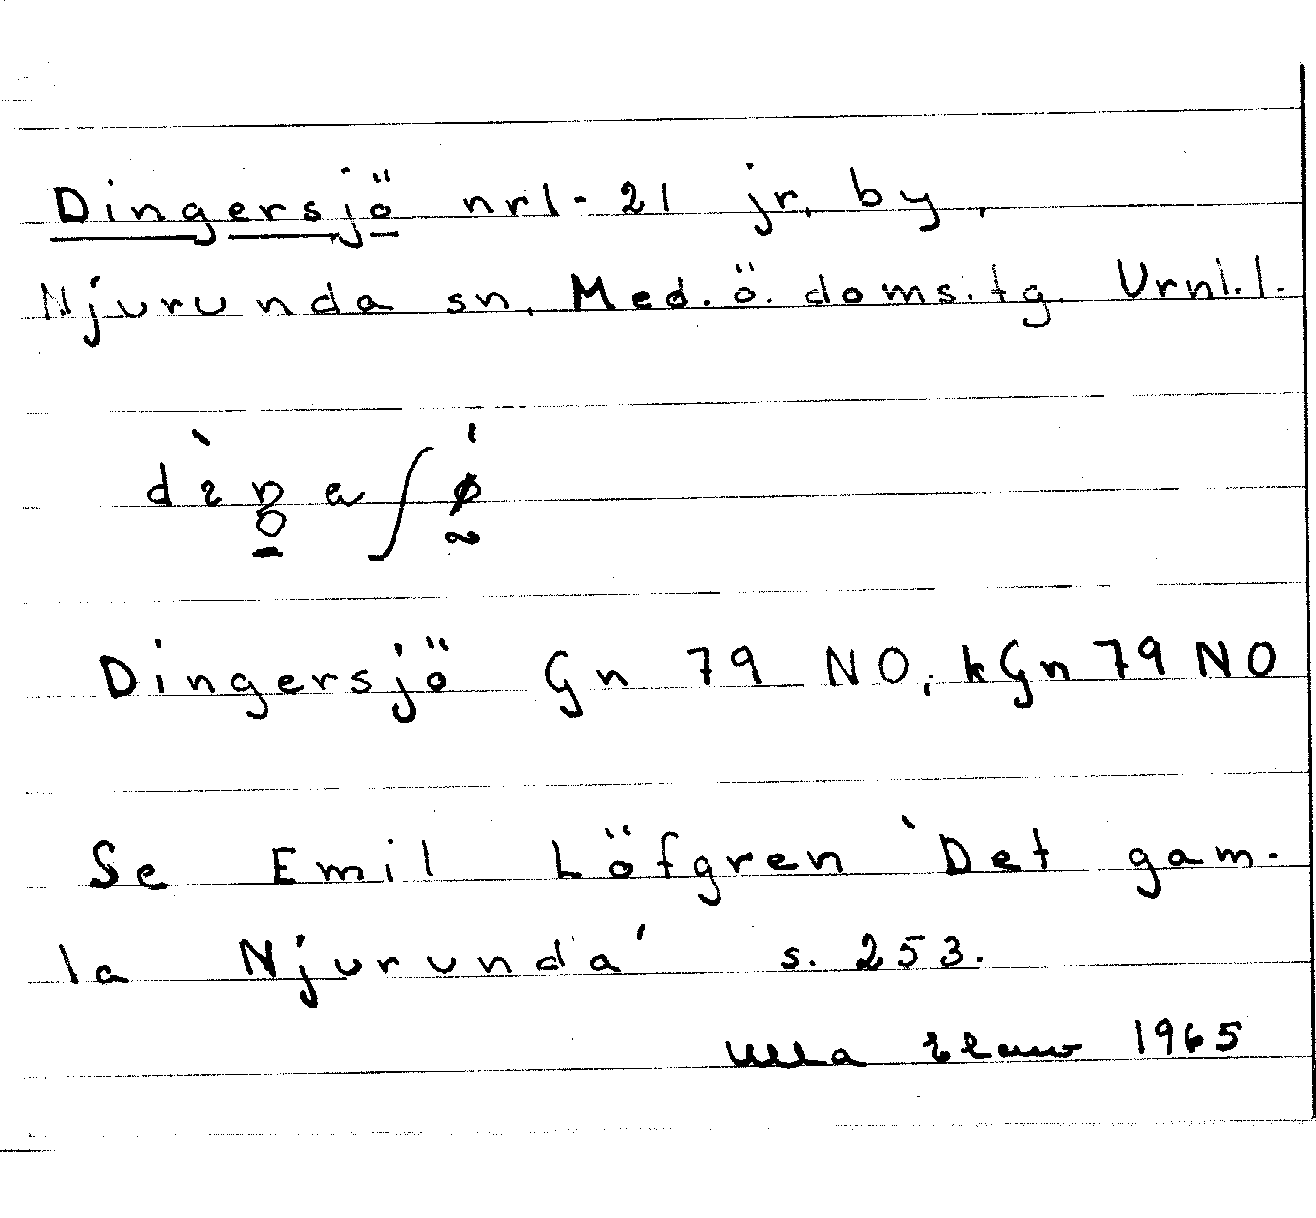 Dingersjö nr1-21 jr, by,
Njurunda sn, Med. ö. doms.tg. Vrnl.l.
Dingersjö Gn 79 NO; kGn 79 NO
Se Emil Löfgren `Det gam-
la Njurunda´ s. 253.
Ulla 1965